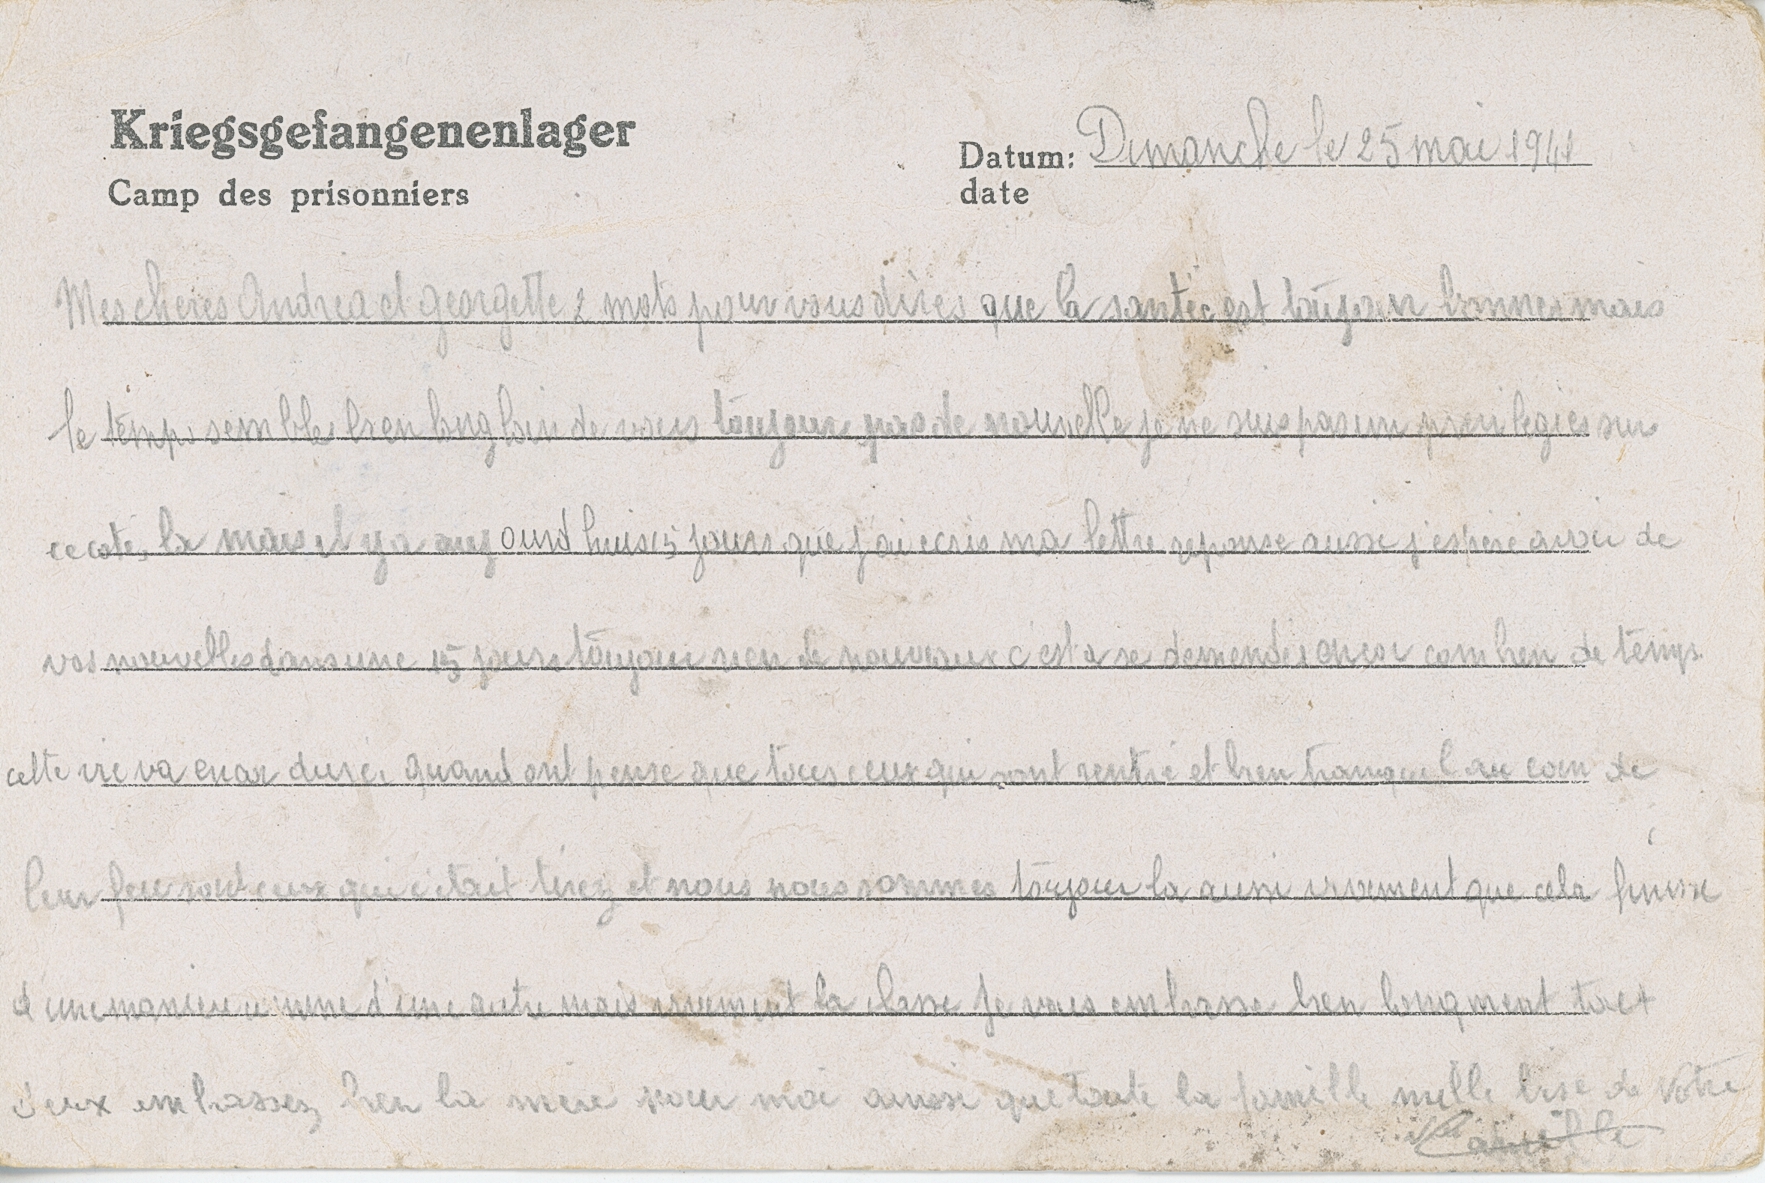 Kriegsgefangenenlager
Camp des prisonniers
Datum: Dimanche le 25 mai 1941
date
Mes cheres Andrea et georgette 2 mots pour vous dires que la santée est toujour bonnes mais
le temps semble bien long loin de vous toujour pas de nouvelle je ne suis pas un privilegies sur
ce coté la mais il y a aujourd huis 15 jours que j'ai ecris ma lettre reponse aussi j'espere avoir de
vos nouvelles dans une 15 jours toujour rien de nouveaux c'est a se demender encor combien de temps
cette vie va encor duré, quand ont pense que tous ceux qui sont rentré et bien tranquil au coin de
leur feu sont ceux qui c'etait tirez et nous nous sommes toujour la aussi vivement que cela finisse
d'une maniere d'une autre mais vivement la classe Je vous embrasse bien longment tout
deux embrassez bien la mere pour moi ainsi que toute la famille mille bise de Votre
Camille